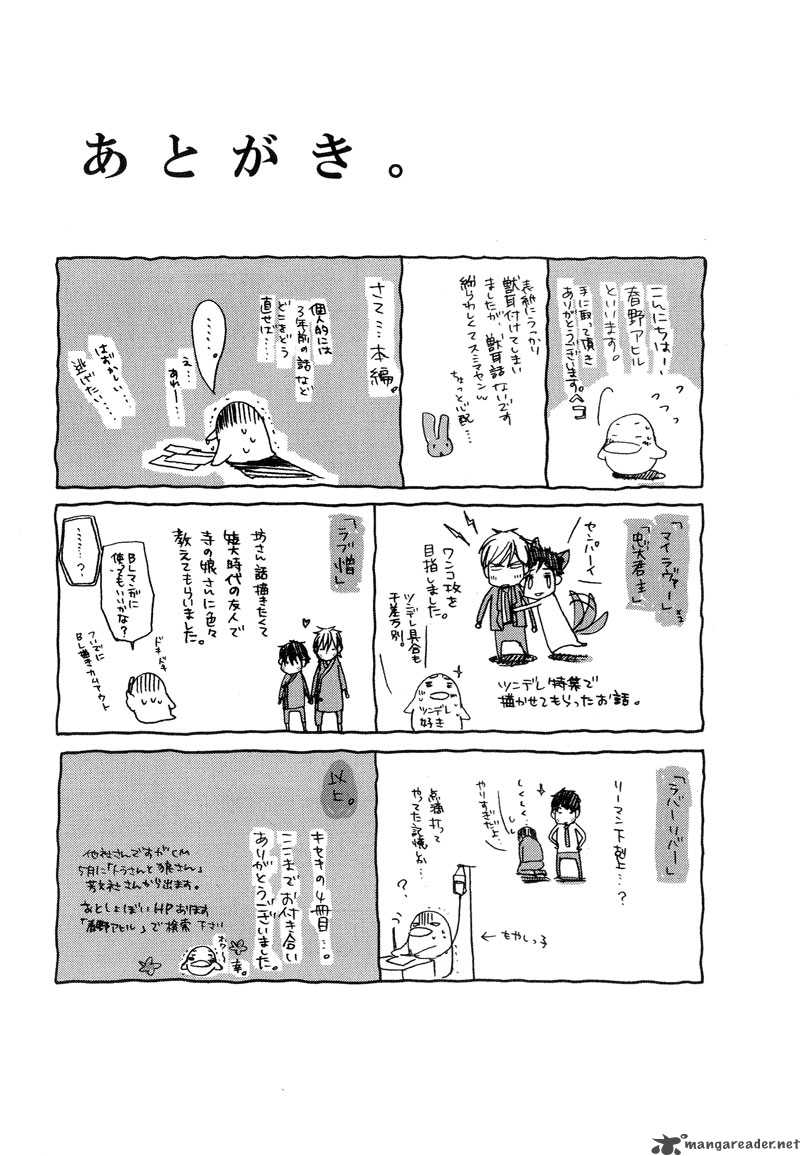 あとがき。
こんにちはー、
春野アヒル
といいます。
手に取って頂き
ありがとうございます。ペコ
表紙にうっかり
獣耳付けてしまい
ましたが、獣耳話ないです
紛らわしくてスミマセン
ちょっと心配…
さて…本編。
個人的には
3年前の話など
どこをどう
直せば……
……。
え…
あれー…
はずかしい
逃げたい…
「マイラヴァー」と
「忠犬君主」
センパーイ
ワンコ攻を
目指しました。
ツンデレ具合も
千差万別。
ツンデレ
好き
ツンデレ特集で
描かせてもらったお話。
「ラブ僧」
坊さん話描きたくて
短大時代の友人で
寺の娘さんに色々
教えてもらいました。
BLマンガに
使ってもいいかな?
……?
ドキドキ
ついでに
BL描きカムアウト
「ラバーリバー」
リーマン下剋上…?
しくしく…
やりすぎだよ…
点滴打って
やってた記憶とか…
?
←もやしっ子
以上。
キセキの4冊目…
ここまでお付き合い
ありがとうございました。
他社さんですがCM
5月に「トラさんと狼さん」
芳文社さんから出ます。
あとしょぼいHPあります
「春野アヒル」で検索下さい
幸。
mangareader.net